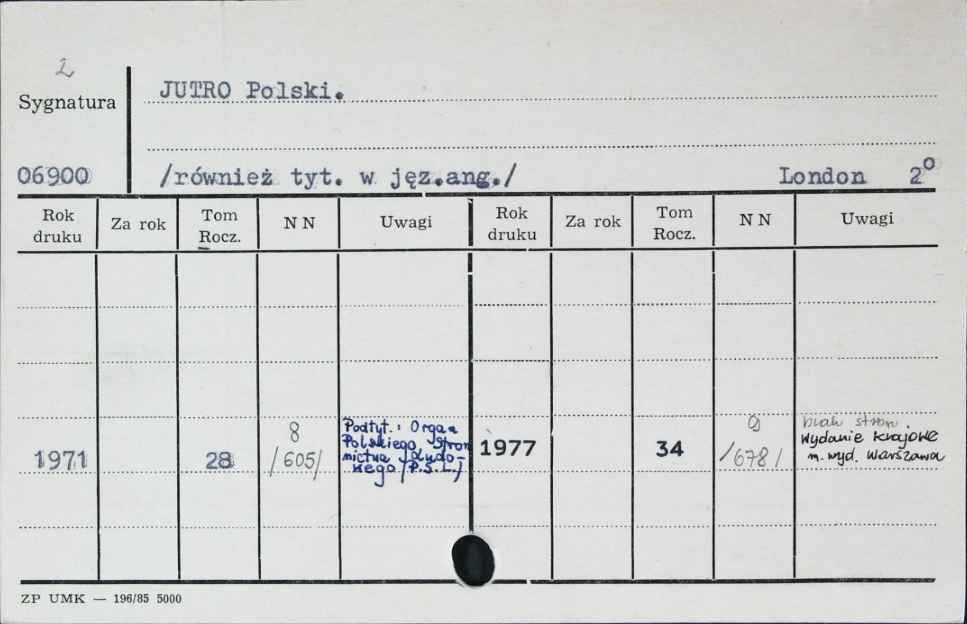 2
Sygnatura
JUTRO Polski.
06900
/również tyt. w jęz.ang./ London 2º
Rok druku Za rok Tom Rocz. N N Uwagi Rok druku Za rok Tom Rocz. N N Uwagi
1971 28 8 /605/
Podtyt.: Organ
Polskiego Stron
nictwa Ludo-
wego /P.S.L./
1977 34 /678/
stron.
Wydanie krajowe
m. wyd. Warszawa
ZP UMK — 196/85 5000